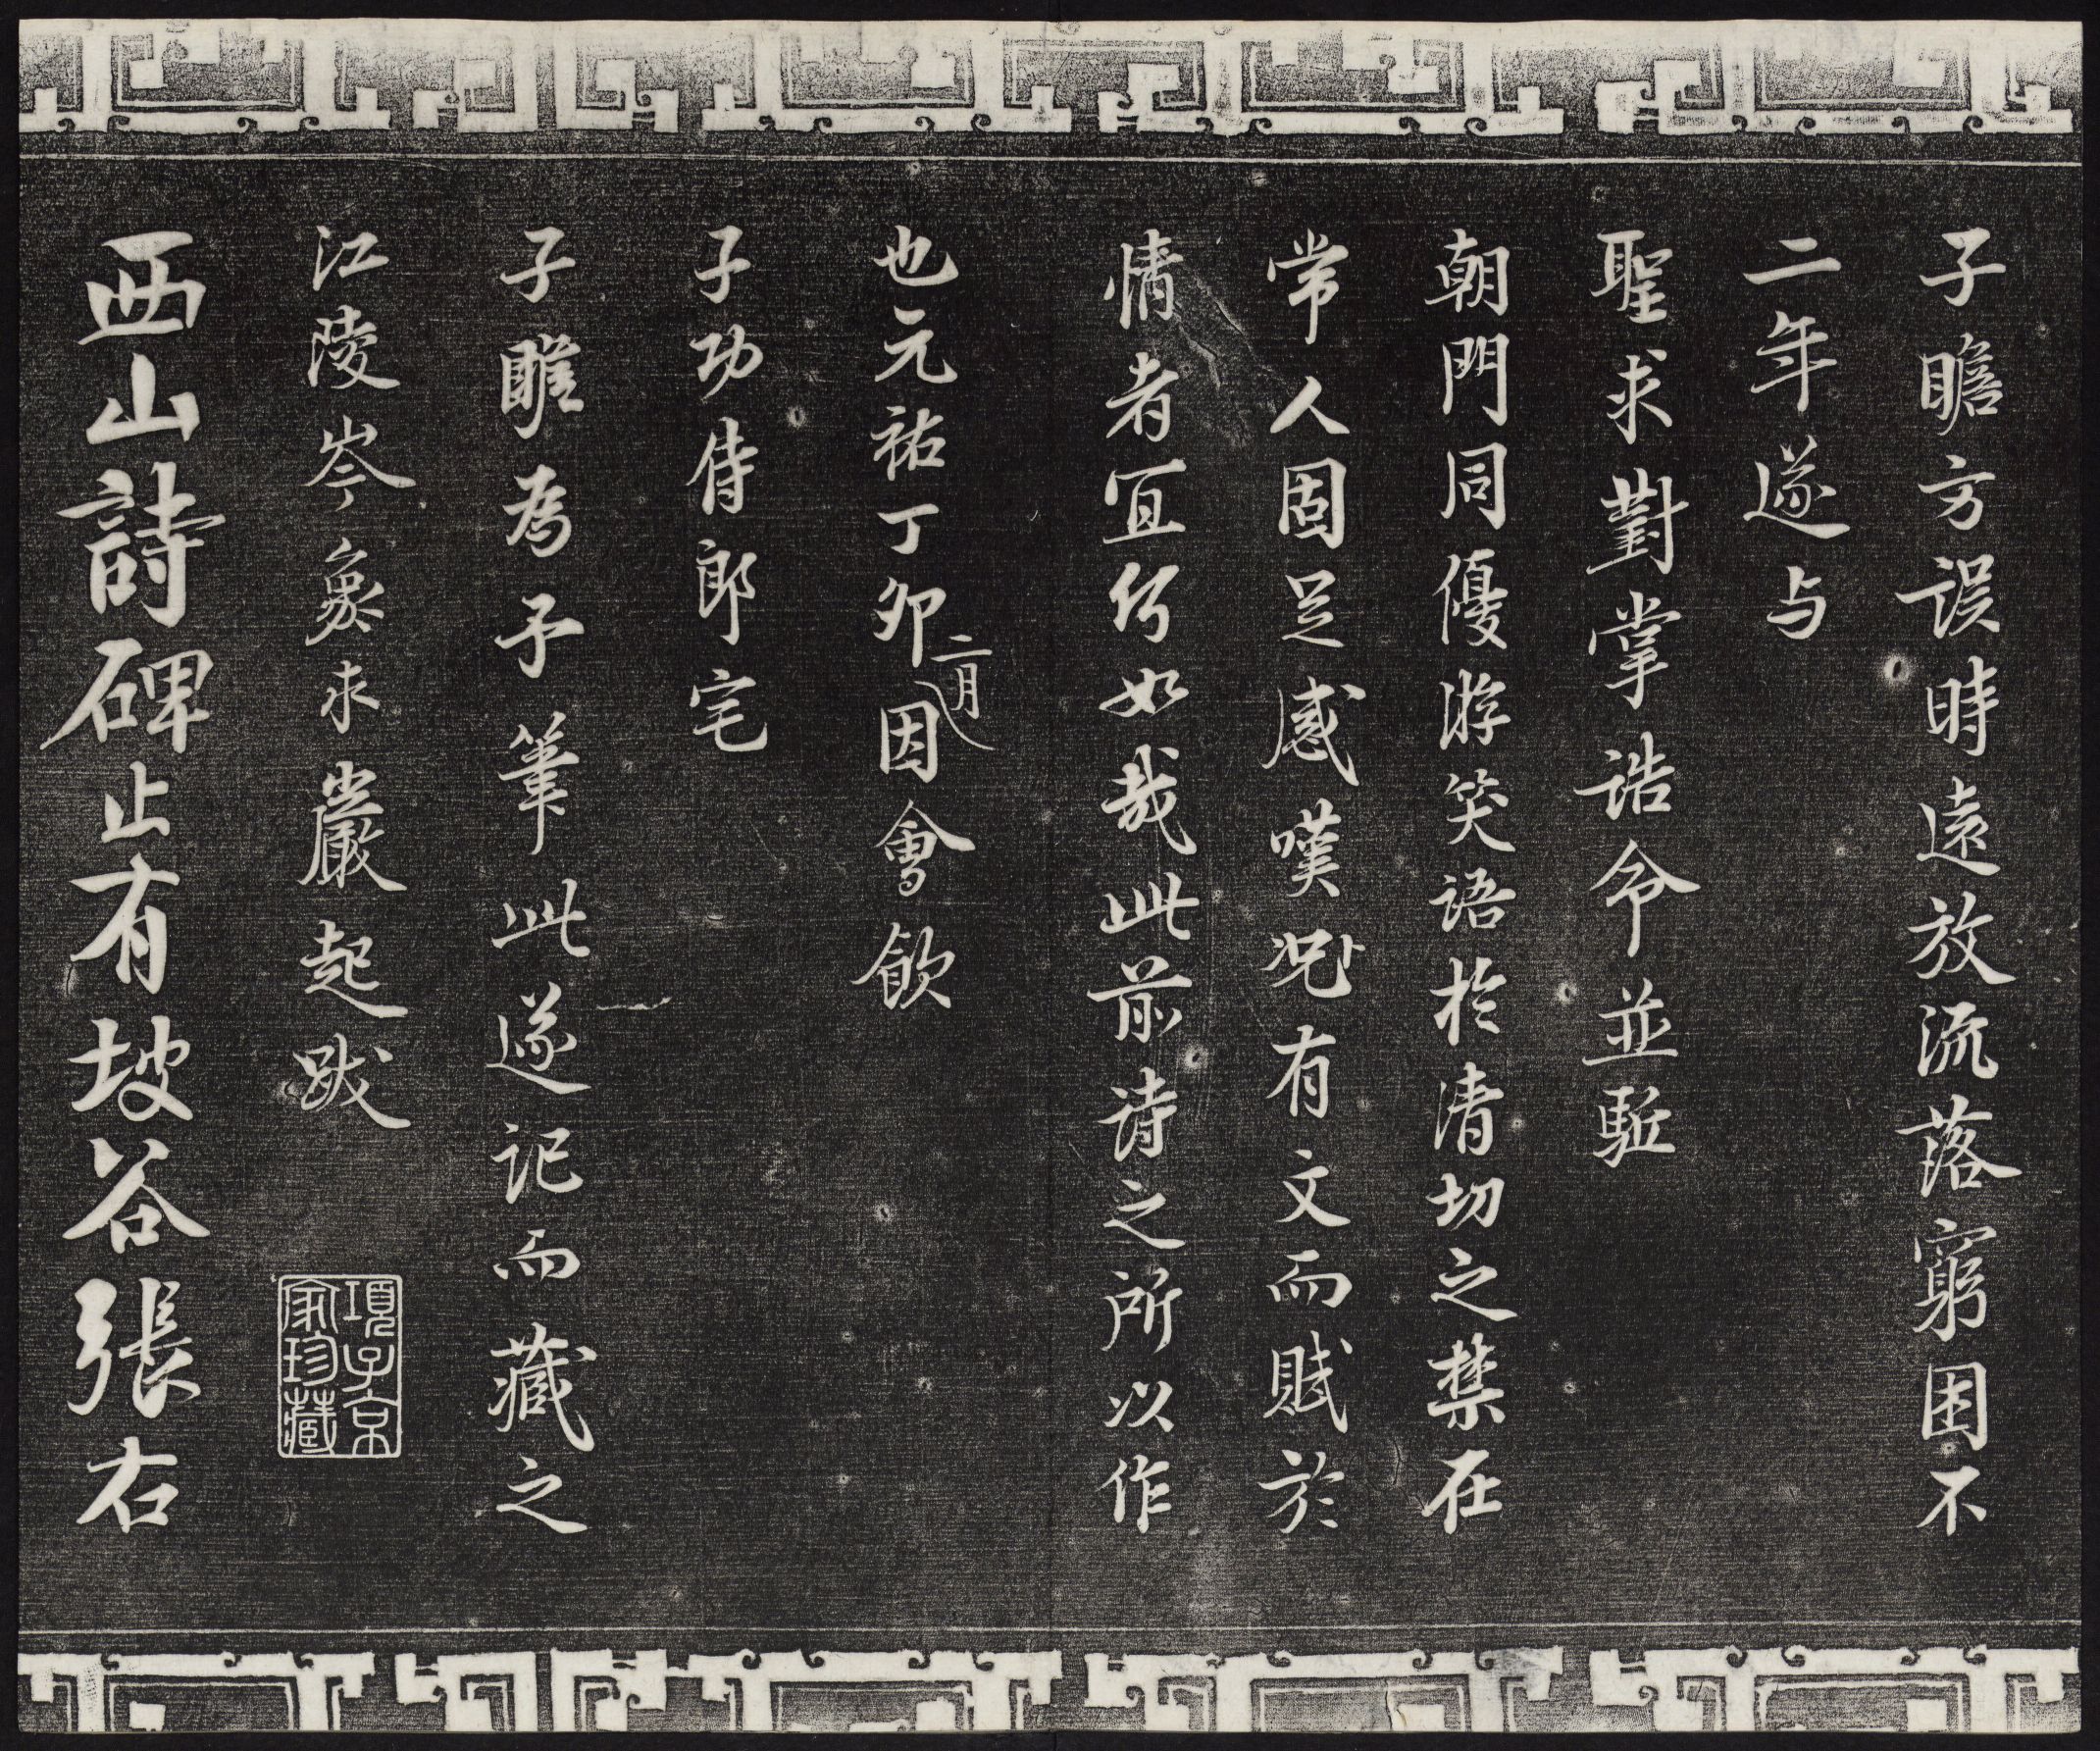 子瞻方誤時遠放流落窮困不
二年遂与
聖求對掌誥命並駈
朝門同優游笑語於清切之禁在
常人固足感嘆況有文而賦於
情者宜何如哉此前诗之所以作
也元祐丁卯二月因會飲
子功侍郎宅
子雎为予筆此遂记而藏之
江陵岑象求巖起跋
項子京
家珍藏
西山詩碑止有坡谷張右